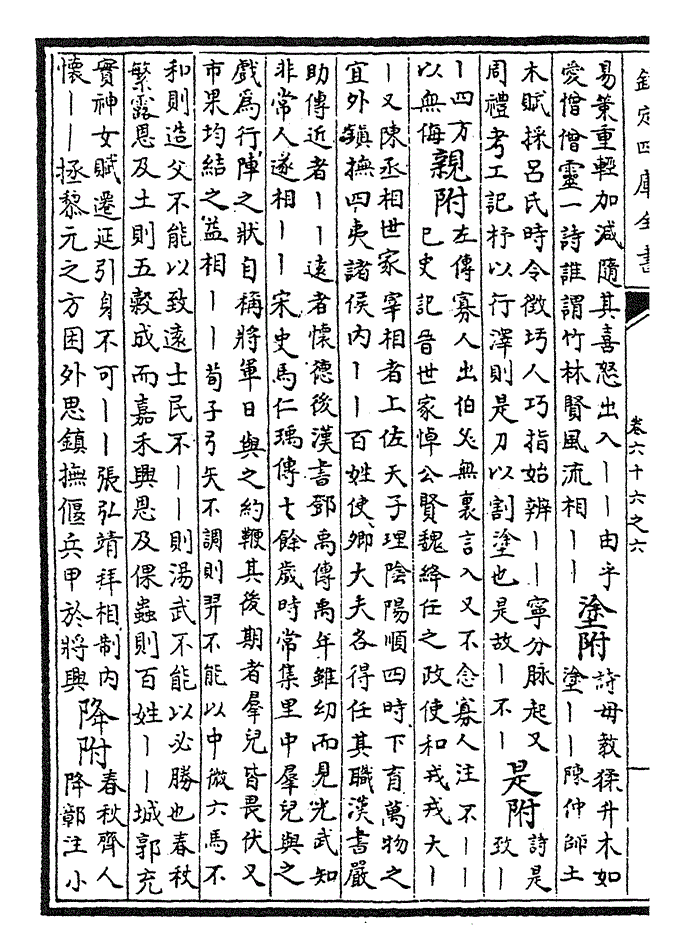 欽定四庫全書
卷六十六之六
易策重輕加減隨其喜怒出入丨丨由乎
愛僧僧靈一詩誰謂竹林賢風流相丨丨
塗附
詩毋教猱升木如
塗丨丨陳仲師土
木賦採呂氏時令徵巧人巧指始辨丨丨寧分脉起又
周禮考工記杼以行澤則是刀以割塗也是故丨不丨
是附
詩是
致丨
丨四方
以無侮
親附
左傳寡人出伯父無裏言入又不念寡人注不丨丨
已史記晉世家悼公賢魏絳任之政使和戎戎大丨
丨又陳丞相世家宰相者上佐天子理陰陽順四時下育萬物之
宜外鎮撫四夷諸侯内丨丨百姓使卿大夫各得任其職漢書嚴
助傳近者丨丨遠者懷德後漢書鄧禹傳禹年雖幼而見光武知
非常人遂相丨丨宋史馬仁瑀傳十餘歲時常集里中羣兒與之
戲爲行陣之狀自稱將軍日與之約鞭其後期者羣兒皆畏伏又
市果均結之益相丨丨荀子弓矢不調則羿不能以中微六馬不
和則造父不能以致遠士民不丨丨則湯武不能以必勝也春秋
繁露恩及土則五穀成而嘉禾興恩及倮蟲則百姓丨丨城郭充
實神女賦遷延引身不可丨丨張弘靖拜相制内
懷丨丨拯黎元之方困外思鎮撫偃兵甲於將興
降附
春秋齊人
降鄣注小